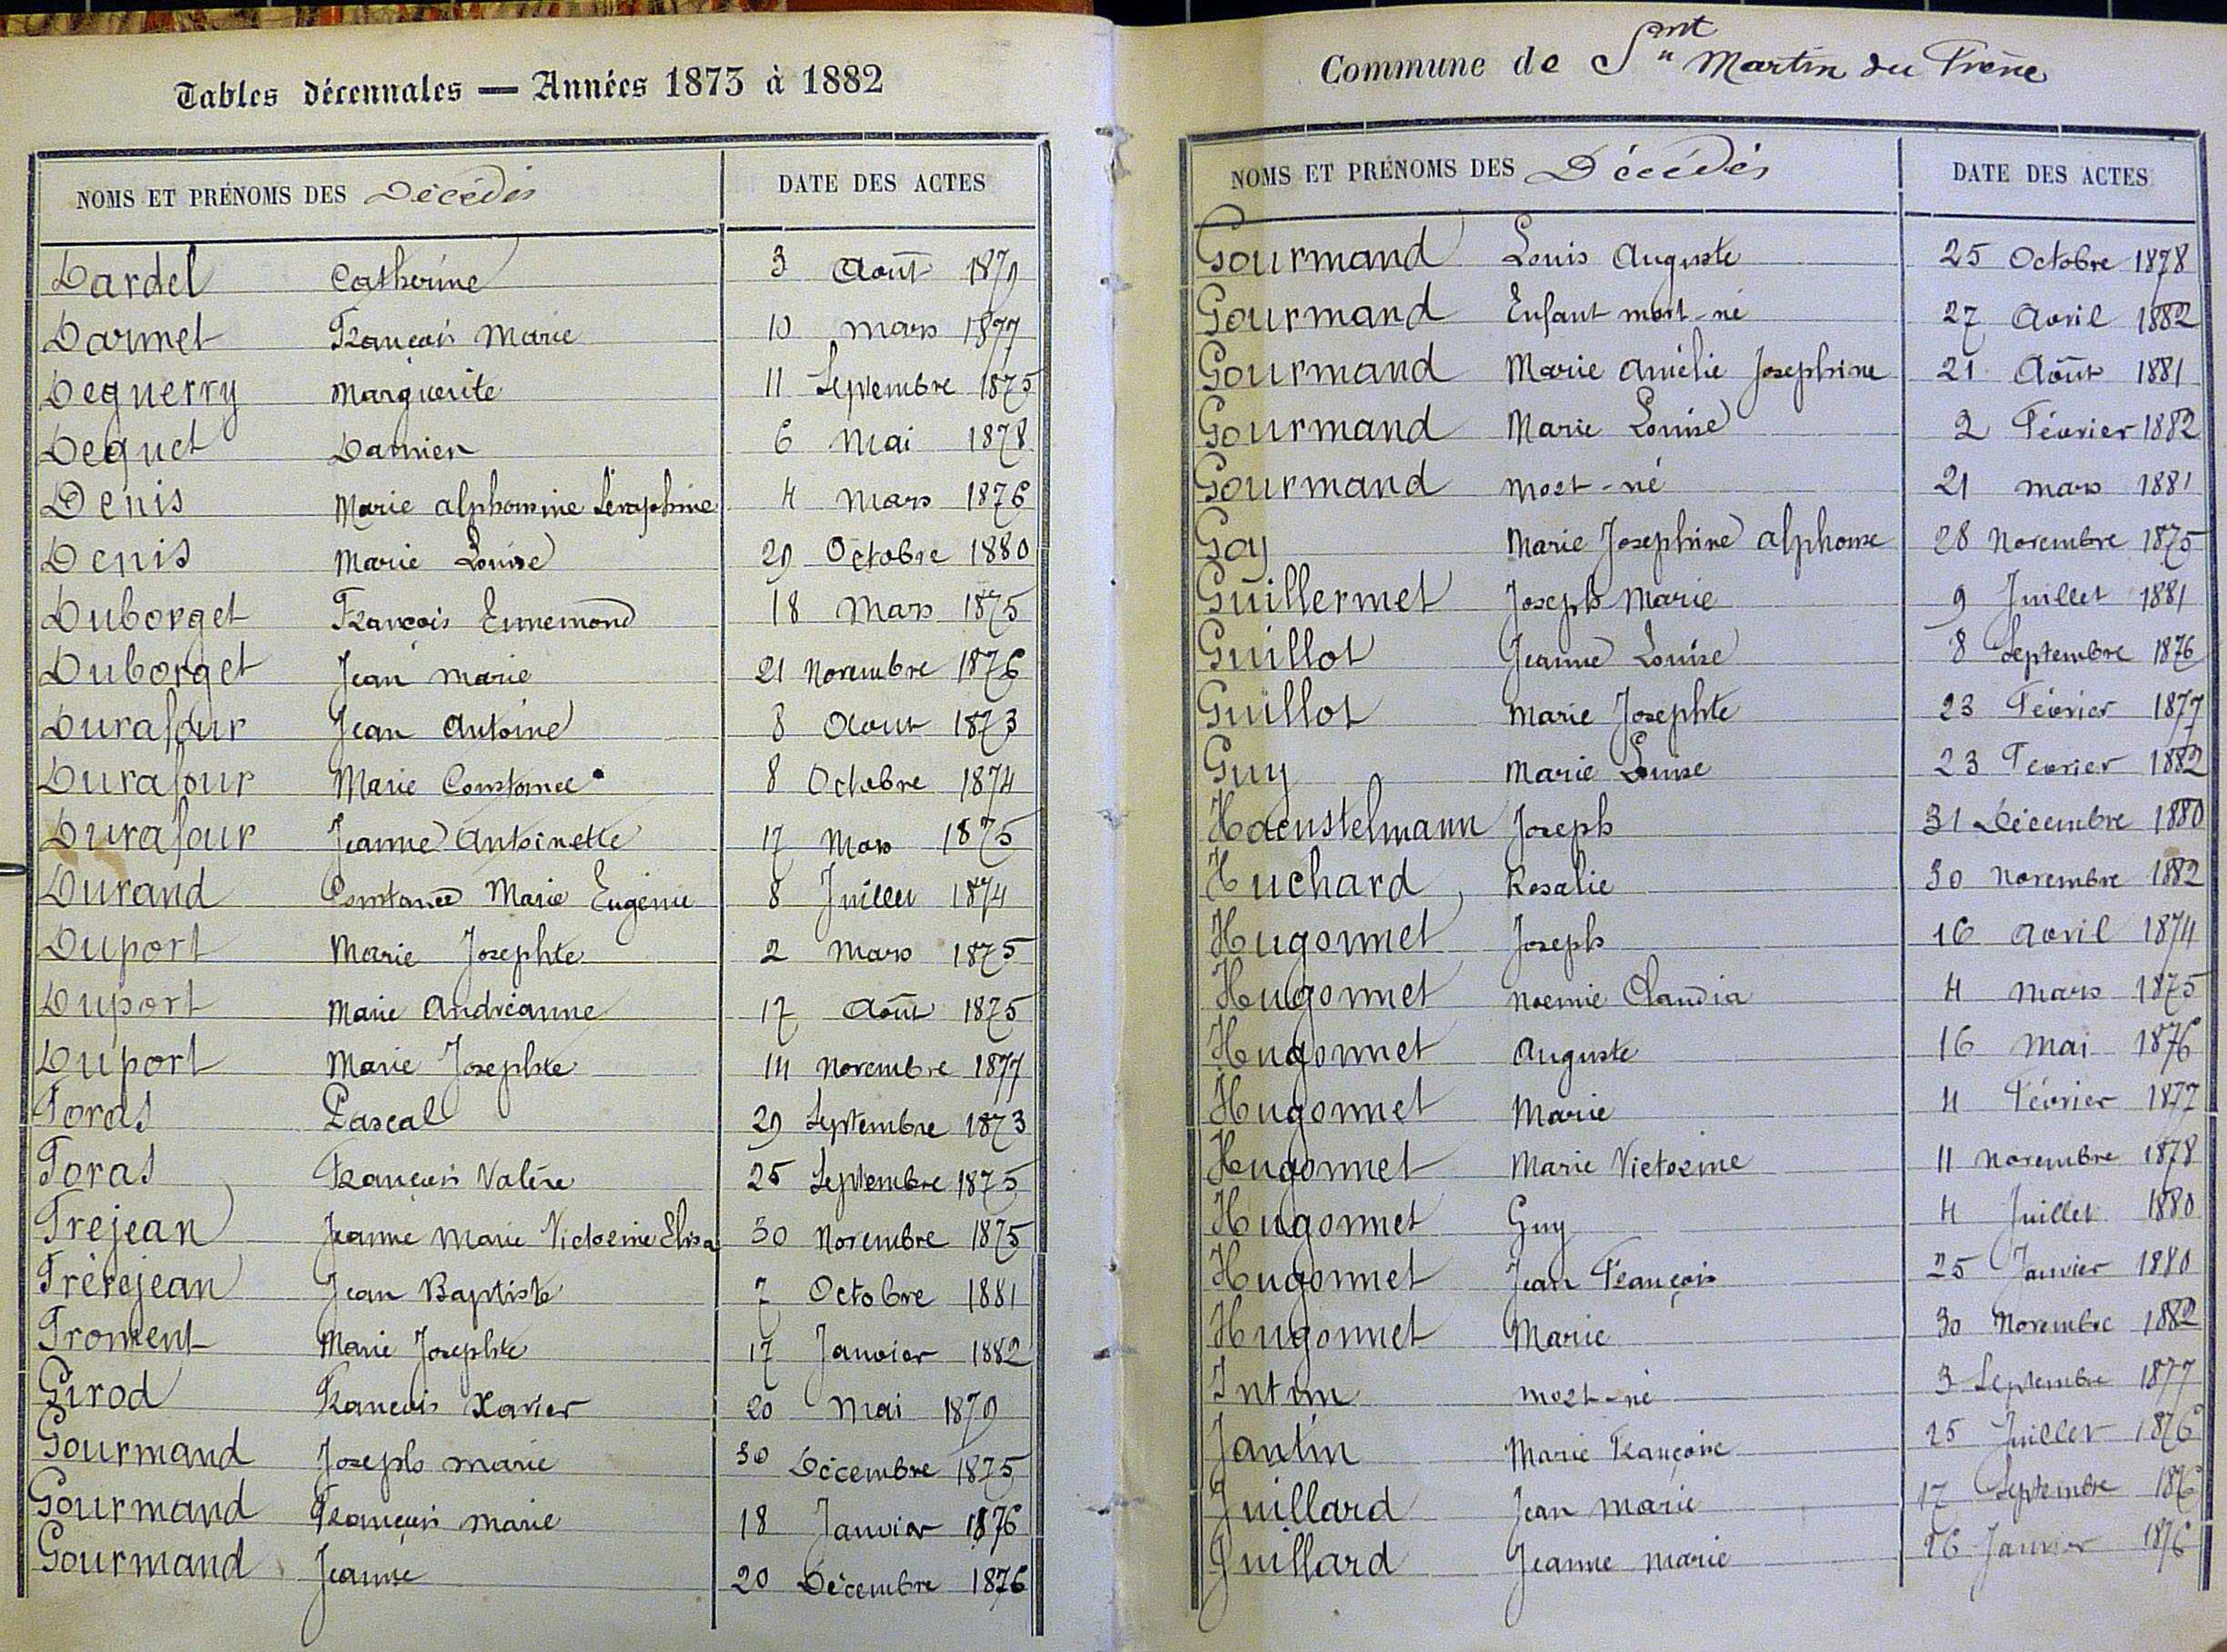 Tables décennales — Années 1873 à 1882
NOMS ET PRÉNOMS DES Décédés DATE DES ACTES
Dardel Catherine 3 Août 1879
Darmet François Marie 10 mars 1877
Deguerry Marguerite 11 Septembre 1875
Deguet Damien 6 Mai 1878
Denis Marie alphonsine Séraphine 4 Mars 1876
Denis Marie Louise 29 Octobre 1880
Duborget François Ennemond 18 Mars 1875
Duborget Jean marie 21 Novembre 1876
Durafour Jean Antoine 8 Aout 1873
Durafour Marie Constance 8 Octobre 1874
Durafour Jeanne Antoinette 17 Mars 1875
Durand Constance Marie Eugénie 8 Juillet 1874
Duport Marie Josephte 2 Mars 1875
Duport Marie Andréanne 17 Août 1875
Duport Marie Josephte 14 Novembre 1877
Foras Pascal 29 Septembre 1873
Foras François Valère 25 Septembre 1875
Frejean Jeanne Marie Victorine Elisa 30 Novembre 1875
Frèrejean Jean Baptiste 7 Octobre 1881
Froment Marie Josephte 17 Janvier 1882
Girod François Xavier 20 Mai 1879
Gourmand Joseph marie 30 Décembre 1875
Gourmand François marie 18 Janvier 1876
Gourmand Jeanne 20 Décembre 1876
Commune de Smt Martin du Frêne
NOMS ET PRÉNOMS DES Décédés DATE DES ACTES
Gourmand Louis Auguste 25 Octobre 1878
Gourmand Enfant mort-né 27 Avril 1882
Gourmand Marie Amélie Josephine 21 Août 1881
Gourmand Marie Louise 2 Février 1882
Gourmand Mort-né 21 mars 1881
Goy Marie Josephine alphonse 28 Novembre 1875
Guillermet Joseph Marie 9 Juillet 1881
Guillot Jeanne Louise 8 Septembre 1876
Guillot Marie Josephte 23 Février 1877
Guy Marie Louise 23 Fevrier 1882
Haenstelmann Joseph 31 Décembre 1880
Huchard Rosalie 30 Novembre 1882
Hugonnet Joseph 16 Avril 1874
Hugonnet Noemie Claudia 4 mars 1875
Hugonnet Auguste 16 Mai 1876
Hugonnet Marie 4 Février 1877
Hugonnet Marie Victorine 11 Novembre 1878
Hugonnet Guy 4 Juillet 1880
Hugonnet Jean François 25 Janvier 1880
Hugonnet Marie 30 Novembre 1882
Intim mort-né 3 Septembre 1877
Jantin Marie Françoise 25 Juillet 1876
Juillard Jean Marie 17 Septembre 1876
Juillard Jeanne Marie 26 Janvier 1876